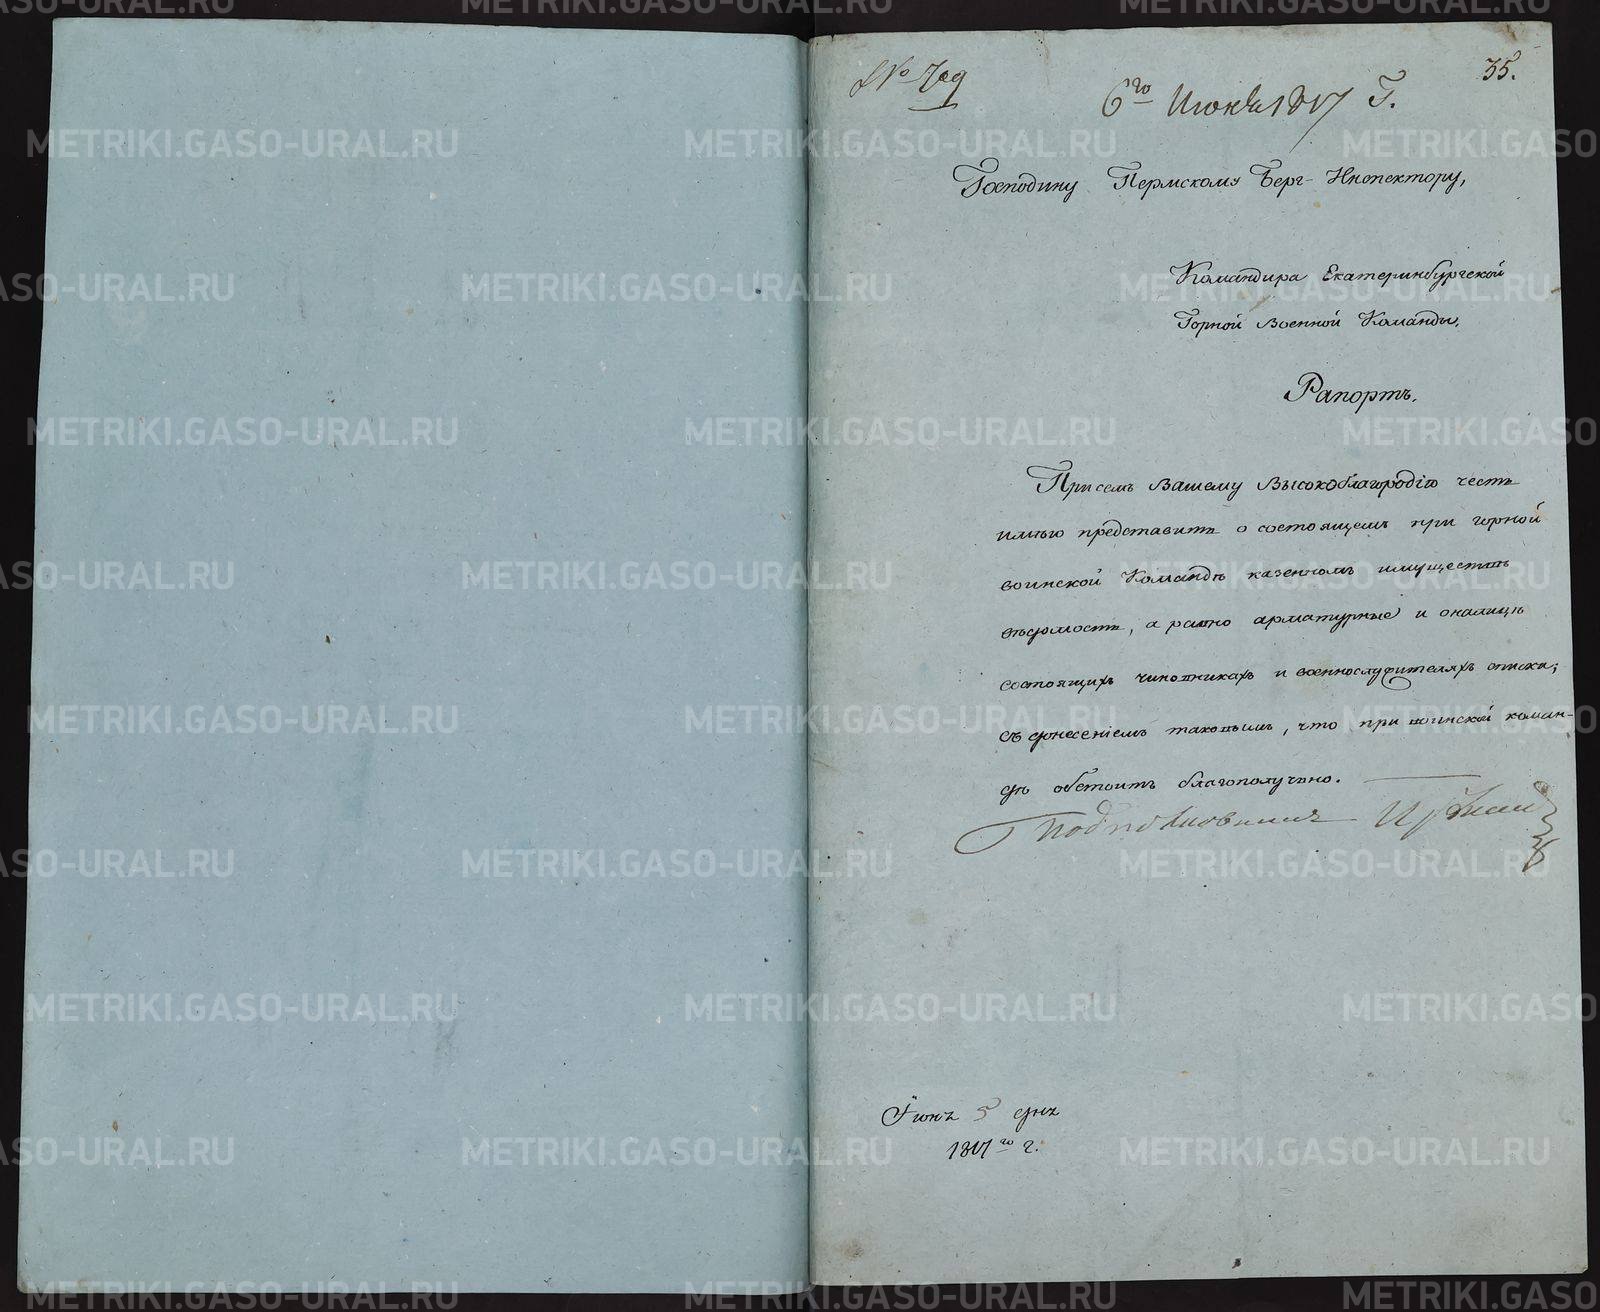 № 709
35.
6го Июня 1817 Г.
Господину Пермскому Берг-Инспектору,
Командира Екатеринбургской
Горной Военной Команды,
Рапортъ.
При семъ Вашему Высокоблагородію честь
имѣю представить о состоящемъ при горной
воинской Командѣ казенномъ имуществѣ
вѣдомость, а равно арматурные и оналицѣ
состоящихъ чиновникахъ и военнослужителяхъ списки;
съ донесеніемъ таковымъ, что при воинской коман-
дѣ обстоитъ благополучно.
Подполковникъ
Іюнь 5 дня
1817го г.
METRIKI.GASO-URAL.RU